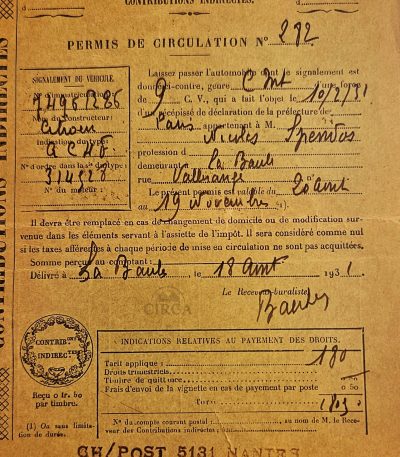 CONTRIBUTIONS INDIRECTES
d
d
CONTRIBUTIONS INDIRECTES
PERMIS DE CIRCULATION N° 292
SIGNALEMENT DU VÉHICULE.
N° d'immatriculation :
Nom du constructeur :
Citroën
Indication du type :
N° d'ordre dans la série du type :
314528
N° du moteur :
Laissez passer l'automobile dont le signalement est
donné ci-contre, genre C Int d'une force
de 9 C. V., qui a fait l'objet 10/2/31
d'un récépissé de déclaration de la préfecture de
Paris appartenant à M.
Nicolas
profession d
demeurant La Baule
rue
Le présent permis est valable du 20 août
au 19 novembre (1).
Il devra être remplacé en cas de changement de domicile ou de modification sur-
venue dans les éléments servant à l'assiette de l'impôt. Il sera considéré comme nul
si les taxes afférentes à chaque période de mise en circulation ne sont pas acquittées.
Somme perçue au comptant :
Délivré à La Baule, le 18 août 1931
Le Receveur buraliste,
CIRCA
CONTRIB.ons INDIREC.tes
Reçu 0 fr. 50
par timbre.
(1) Ou sans limita-
tion de durée.
INDICATIONS RELATIVES AU PAYEMENT DES DROITS.
Tarif appliqué : 180
Droits trimestriels
Timbre de quittance 50
Frais d'envoi de la vignette en cas de payement par poste 0 50
Total
N° du compte courant postal au nom de M. le Rece-
veur des Contributions indirectes :
CH/POST 5131 NANTES